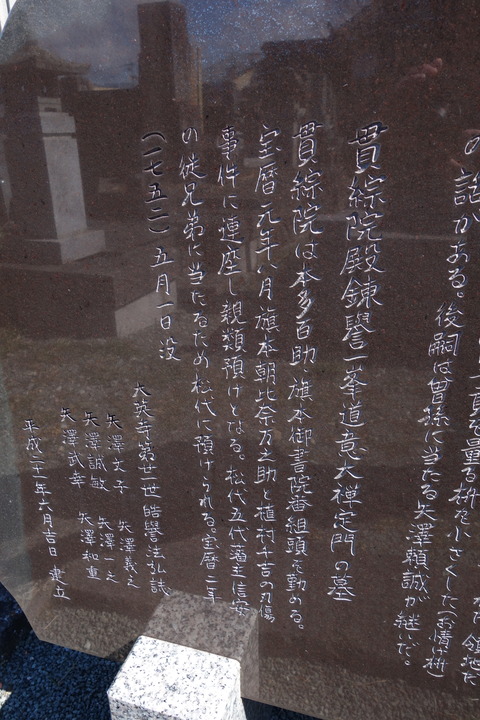 領地た
一貫を量る枡を小さくした（お情け枡）
の話がある。後嗣は曽孫に当たる矢澤頼誠が継いだ。
貫綜院殿錬譽一峯道意大禅定門の墓
貫綜院は本多百助、旗本御書院番組頭を勤める。
宝暦元年八月旗本朝比奈万之助と植村千吉の刃傷
事件に連座し親類預けとなる。松代五代藩主信安
の従兄弟に当たるため松代に預けられる。宝暦二年
（一七五二）五月一日没
大英寺第廿一世 皓譽法弘誌
矢澤文子 矢澤義之
矢澤誠敏 矢澤一之
矢澤武幸 矢澤和重
平成二十一年六月吉日 建立